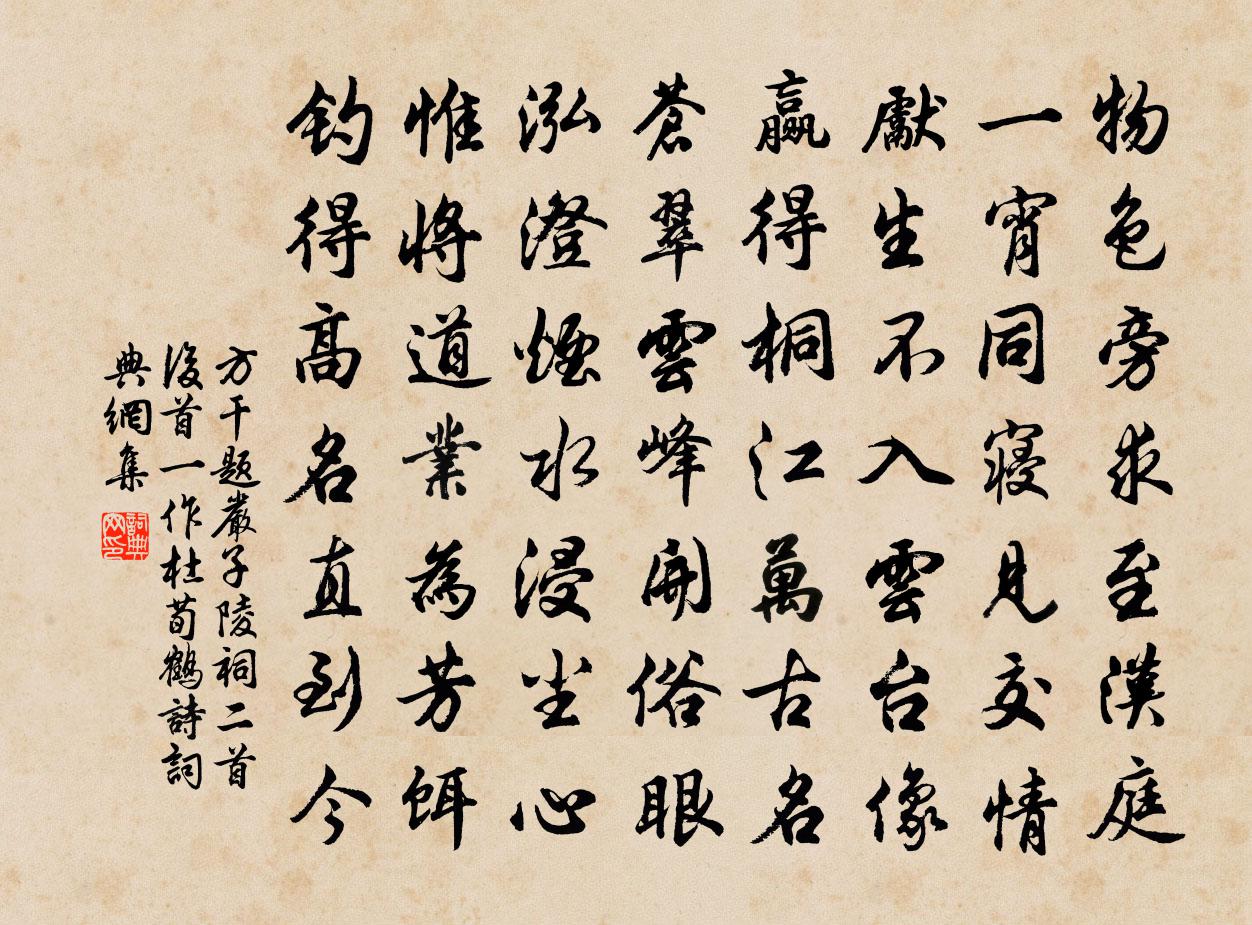 物色旁求至漢庭
一宵同寢見交情
獻生不入雲台像
贏得桐江萬古名
蒼翠雲峰開俗眼
泓澄煙水浸尘心
惟將道業為芳餌
钓得高名直到今
方干题嚴子陵祠二首
後首一作杜荀鶴詩詞
典網集
詞典
网印